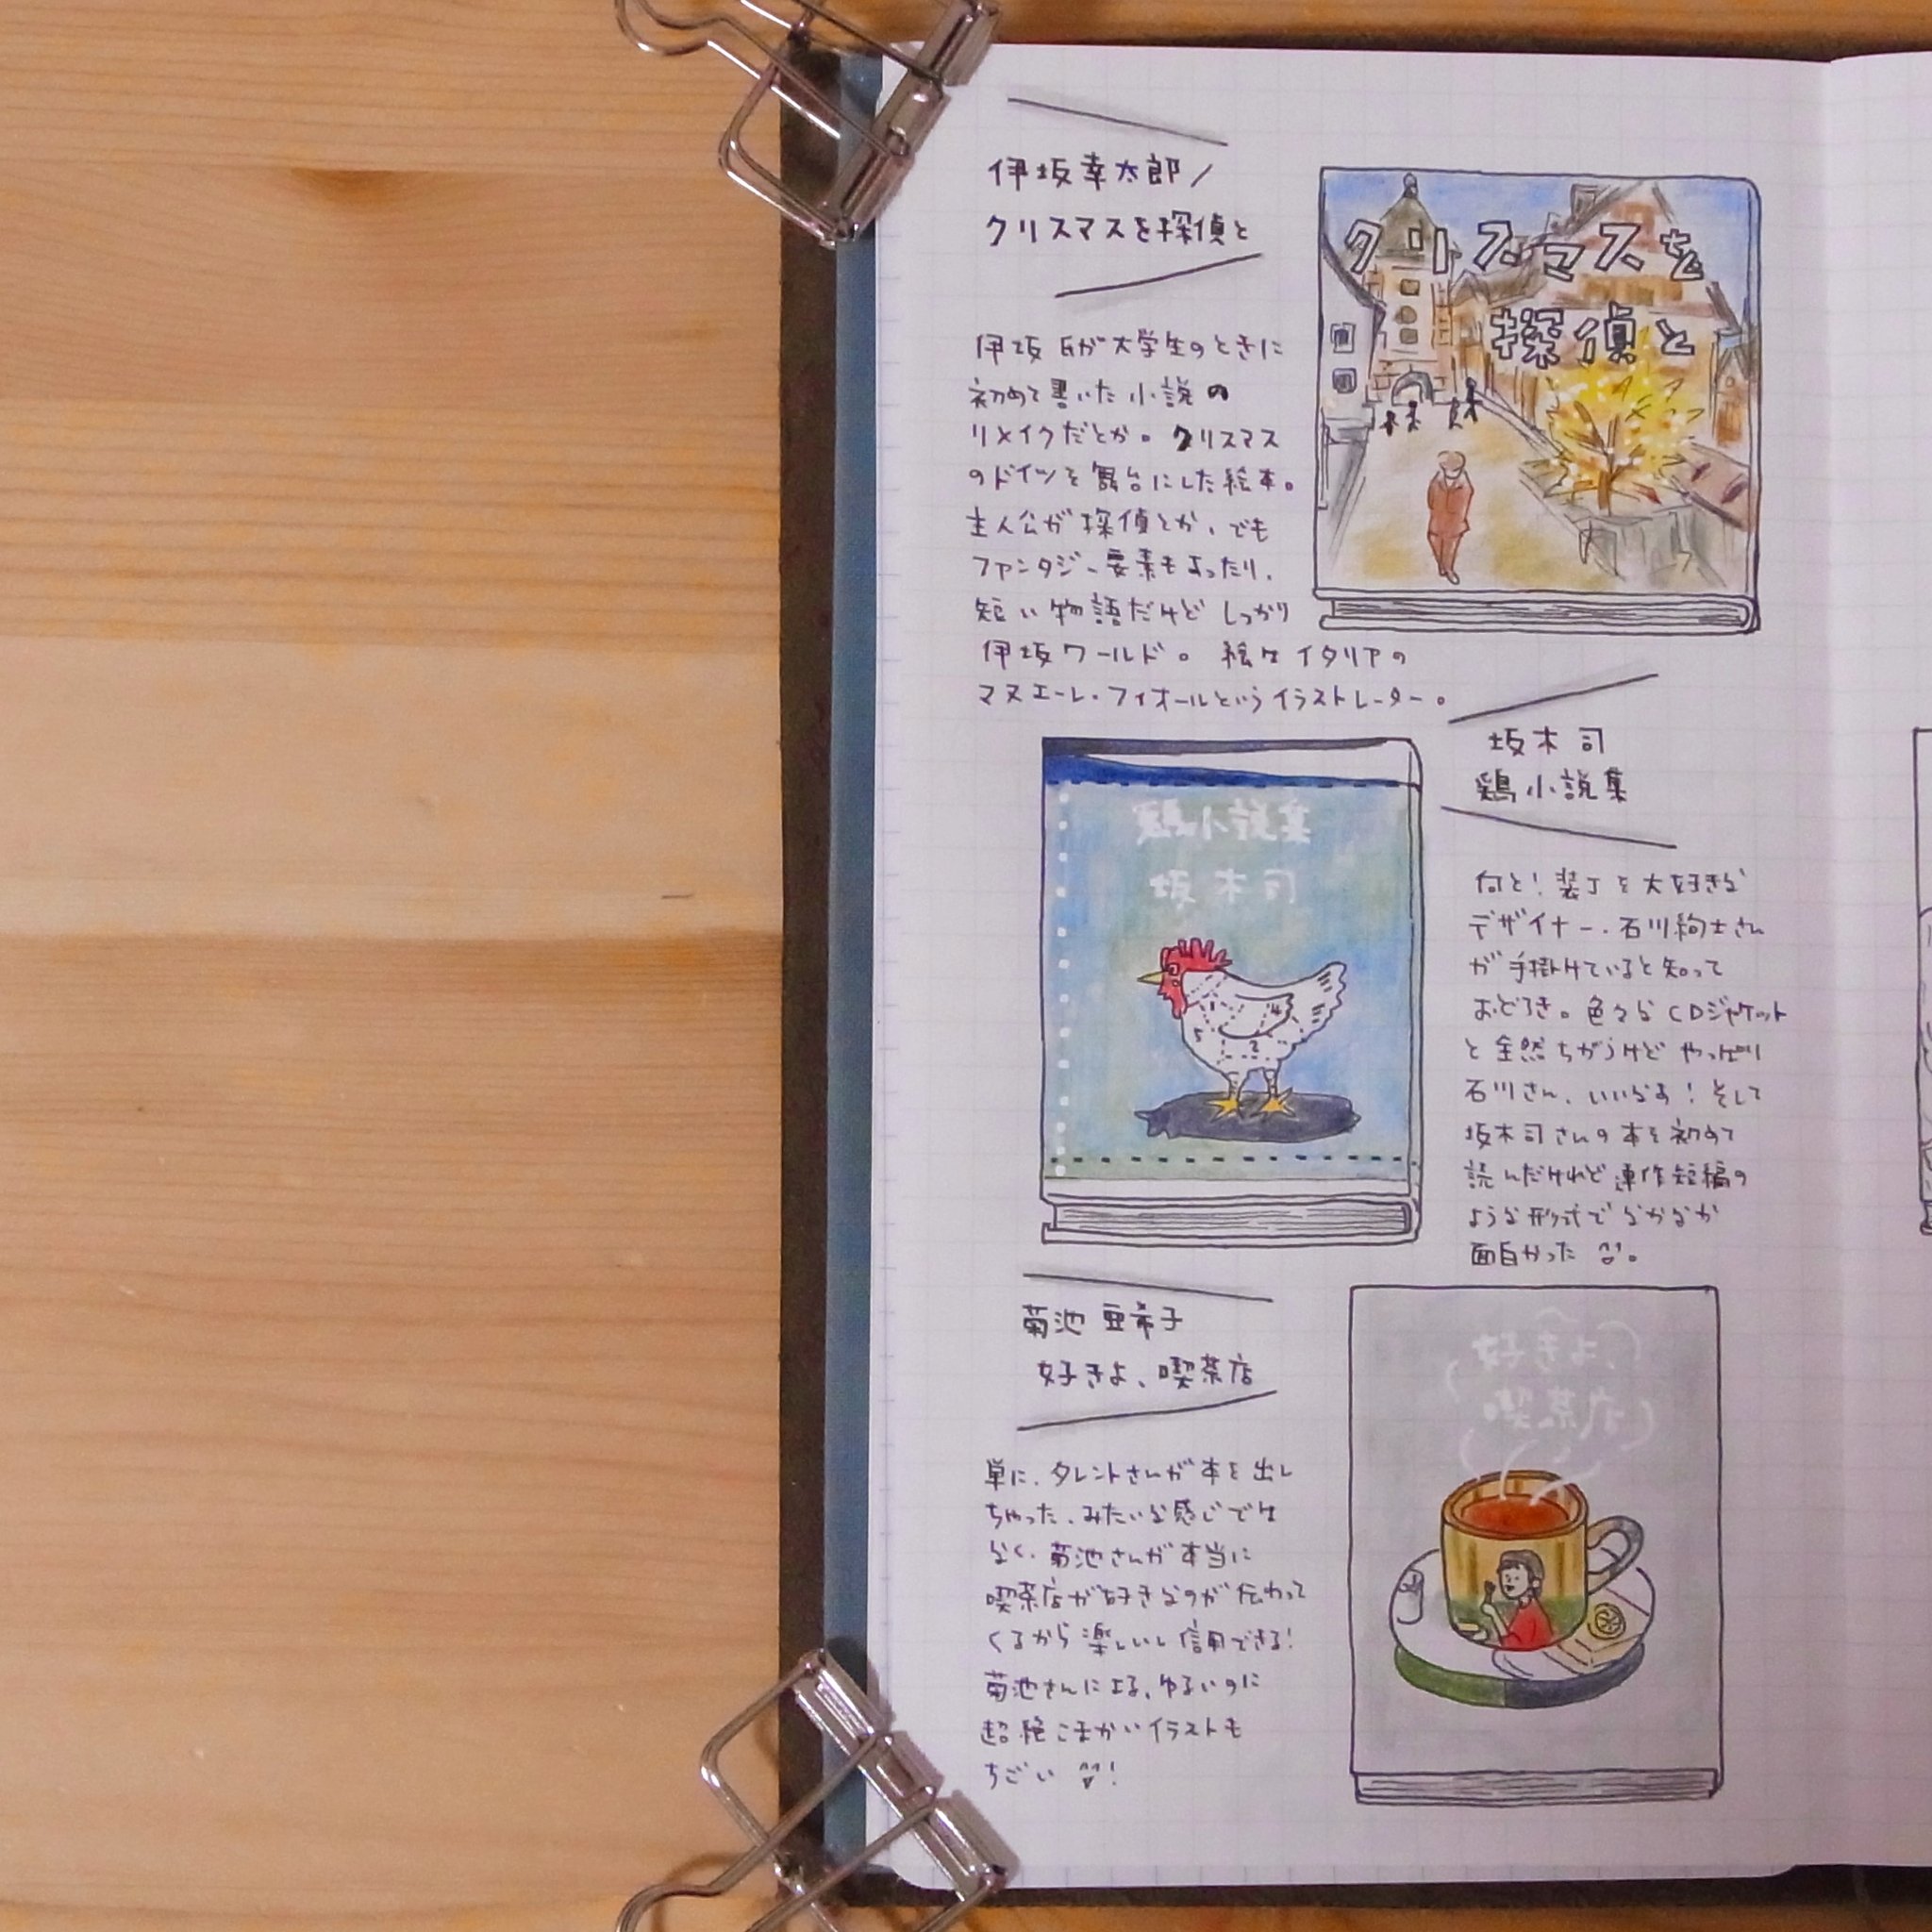 伊坂幸太郎/
クリスマスを探偵と
クリスマスを
探偵と
伊坂氏が大学生のときに
初めて書いた小説の
リメイクだとか。クリスマス
のドイツを舞台にした絵本。
主人公が探偵とか、でも
ファンタジー要素もあったり、
短い物語だけどしっかり
伊坂ワールド。絵はイタリアの
マヌエーレ・フィオールというイラストレーター。
坂木司
鶏小説集
鶏小説集
坂木司
何と!装丁を大好きな
デザイナー・石川絢士さん
が手掛けていると知って
おどろき。色々なCDジャケット
と全然ちがうけどやっぱり
石川さん、いいなあ!そして
坂木司さんの本を初めて
読んだけれど連作短編の
ような形式でなかなか
面白かった。
菊池亜希子
好きよ、喫茶店
好きよ
喫茶店
単に、タレントさんが本を出し
ちゃった、みたいな感じでは
なく、菊池さんが本当に
喫茶店が好きなのが伝わって
くるから楽しいし信用できる!
菊池さんによる、ゆるいのに
超絶こまかいイラストも
すごい!